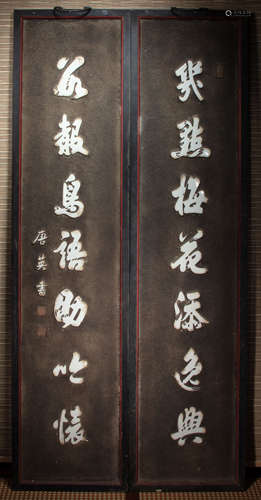 幾點梅花添逸興
數聲鳥語助吟懷
唐英書